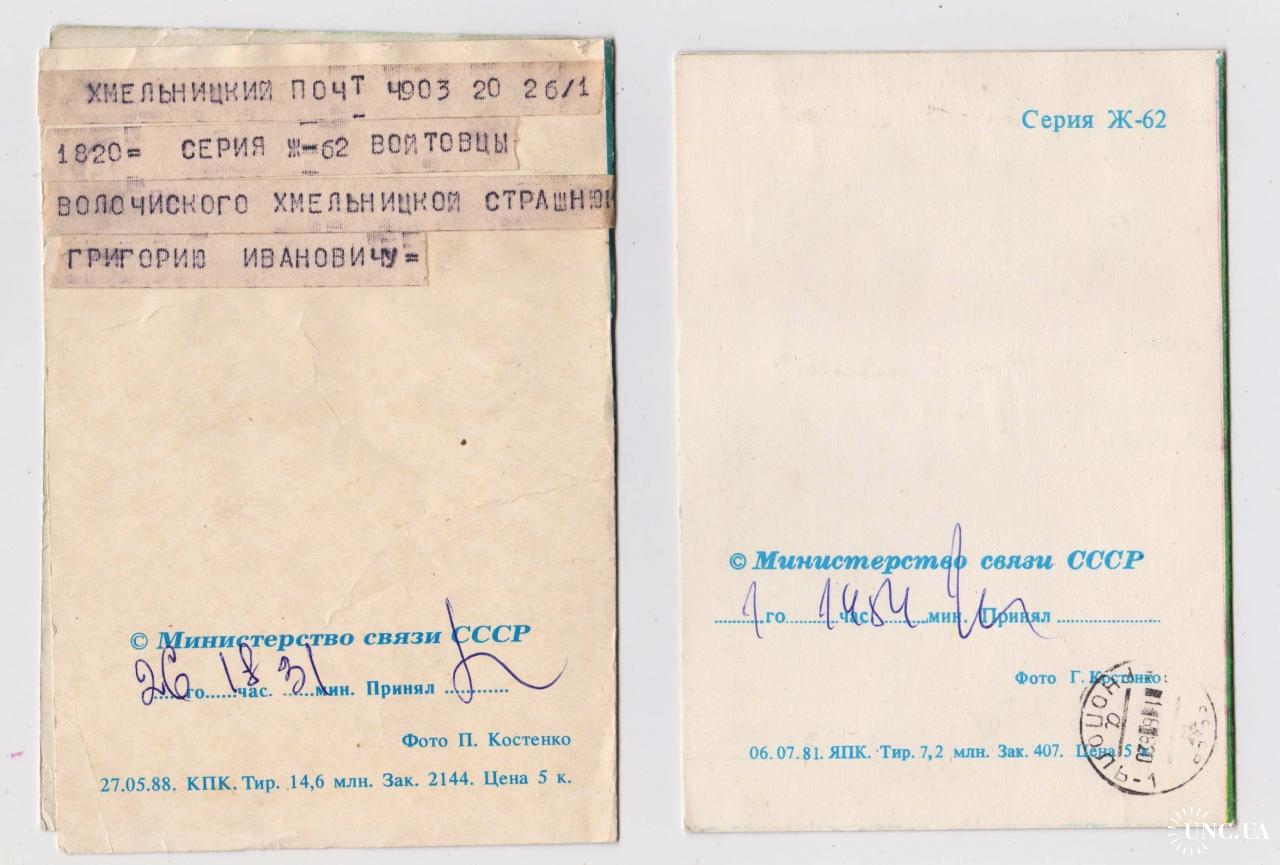 ХМЕЛЬНИЦКИЙ ПОЧТ Ч903 20 26/1
1820= СЕРИЯ Ж-62 ВОЙТОВЦЫ
ВОЛОЧИСКОГО ХМЕЛЬНИЦКОЙ СТРАШНЮК
ГРИГОРИЮ ИВАНОВИЧУ=
© Министерство связи СССР
26 го 18 час. 31 мин. Принял
Фото П. Костенко
27.05.88. КПК. Тир. 14,6 млн. Зак. 2144. Цена 5 к.
Серия Ж-62
© Министерство связи СССР
1 го 14 час 54 мин. Принял
Фото Г. Костенко
06.07.81. ЯПК. Тир. 7,2 млн. Зак. 407. Цена 5 к.
UNC.UA